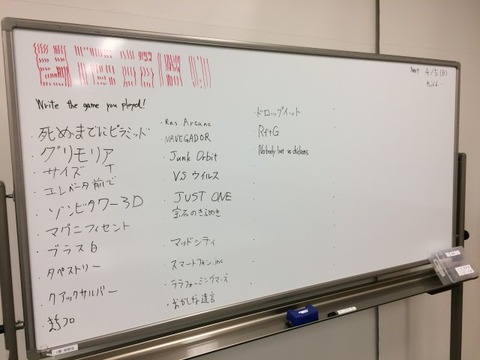 Next 4/5(日)
Write the game you played!
・死ぬまでにピラミッド
・グリモリア
・サイズ
・エレベータ前で
・ゾンビタワー3D
・マグニフィセント
・プラス6
・タペストリー
・クアックサルバー
・Res Arcana
・NAVEGADOR
・Junk Orbit
・VSウイルス
・JUST ONE
・宝石のきらめき
・マッドシティ
・スマートフォン.inc
・テラフォーミングマーズ
・おかしな遺言
・ドロップイット
・RftG
・Nobody but us chickens